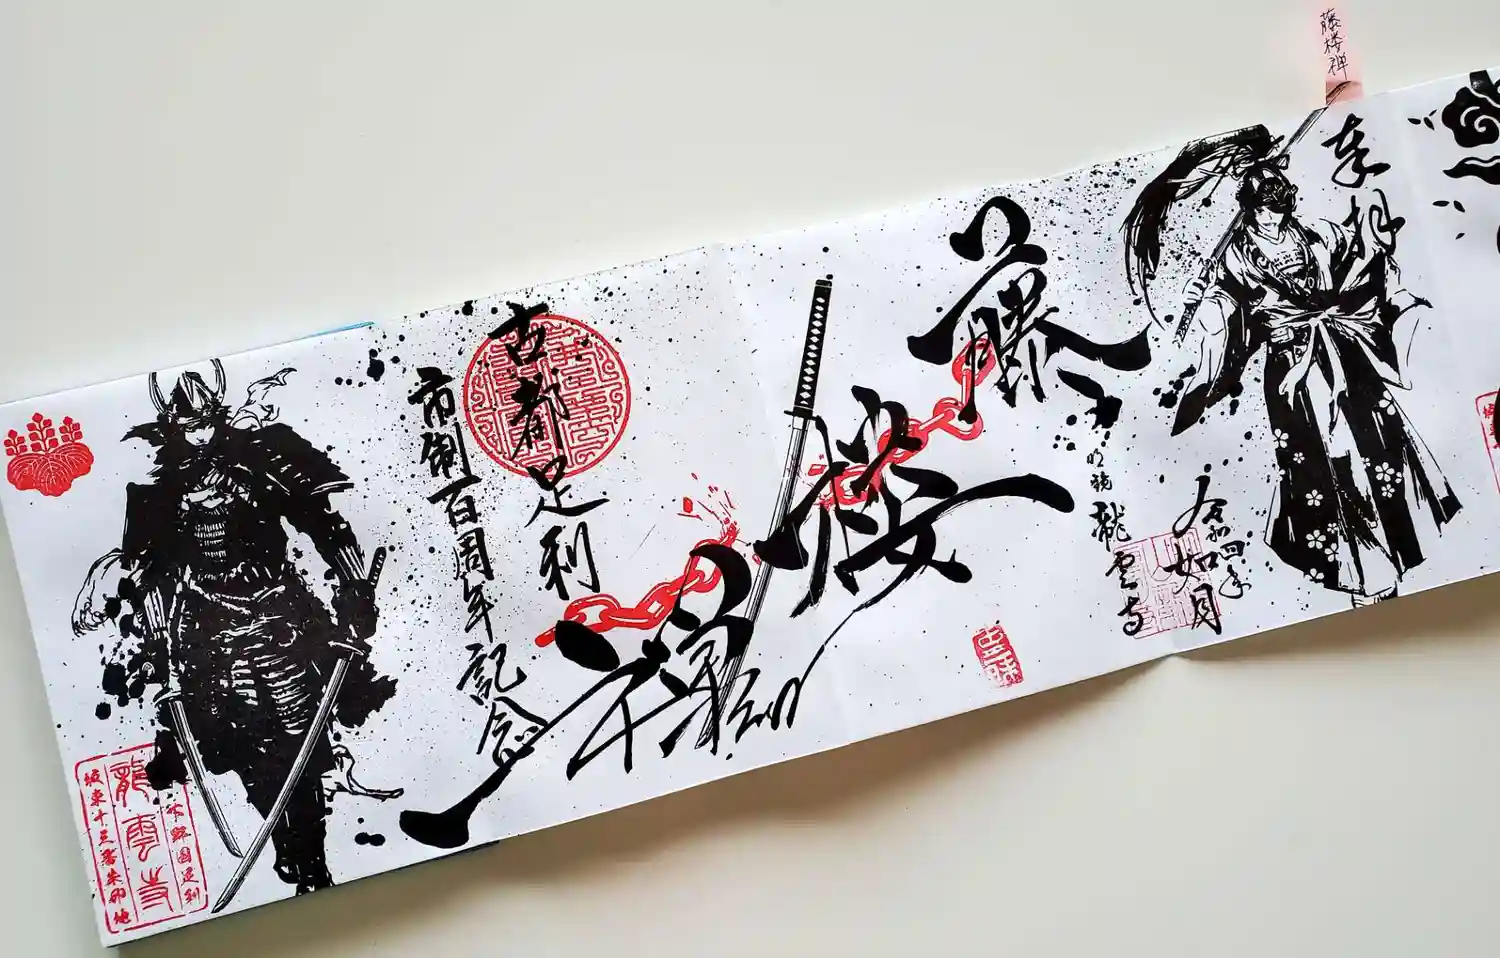 藤楼禅
奉拝
令和四年
如月
藤
楼
禅
明鏡
龍雲寺
古都足利
市制百周年記念
下野国足利
龍雲寺
坂東十三番朱印地